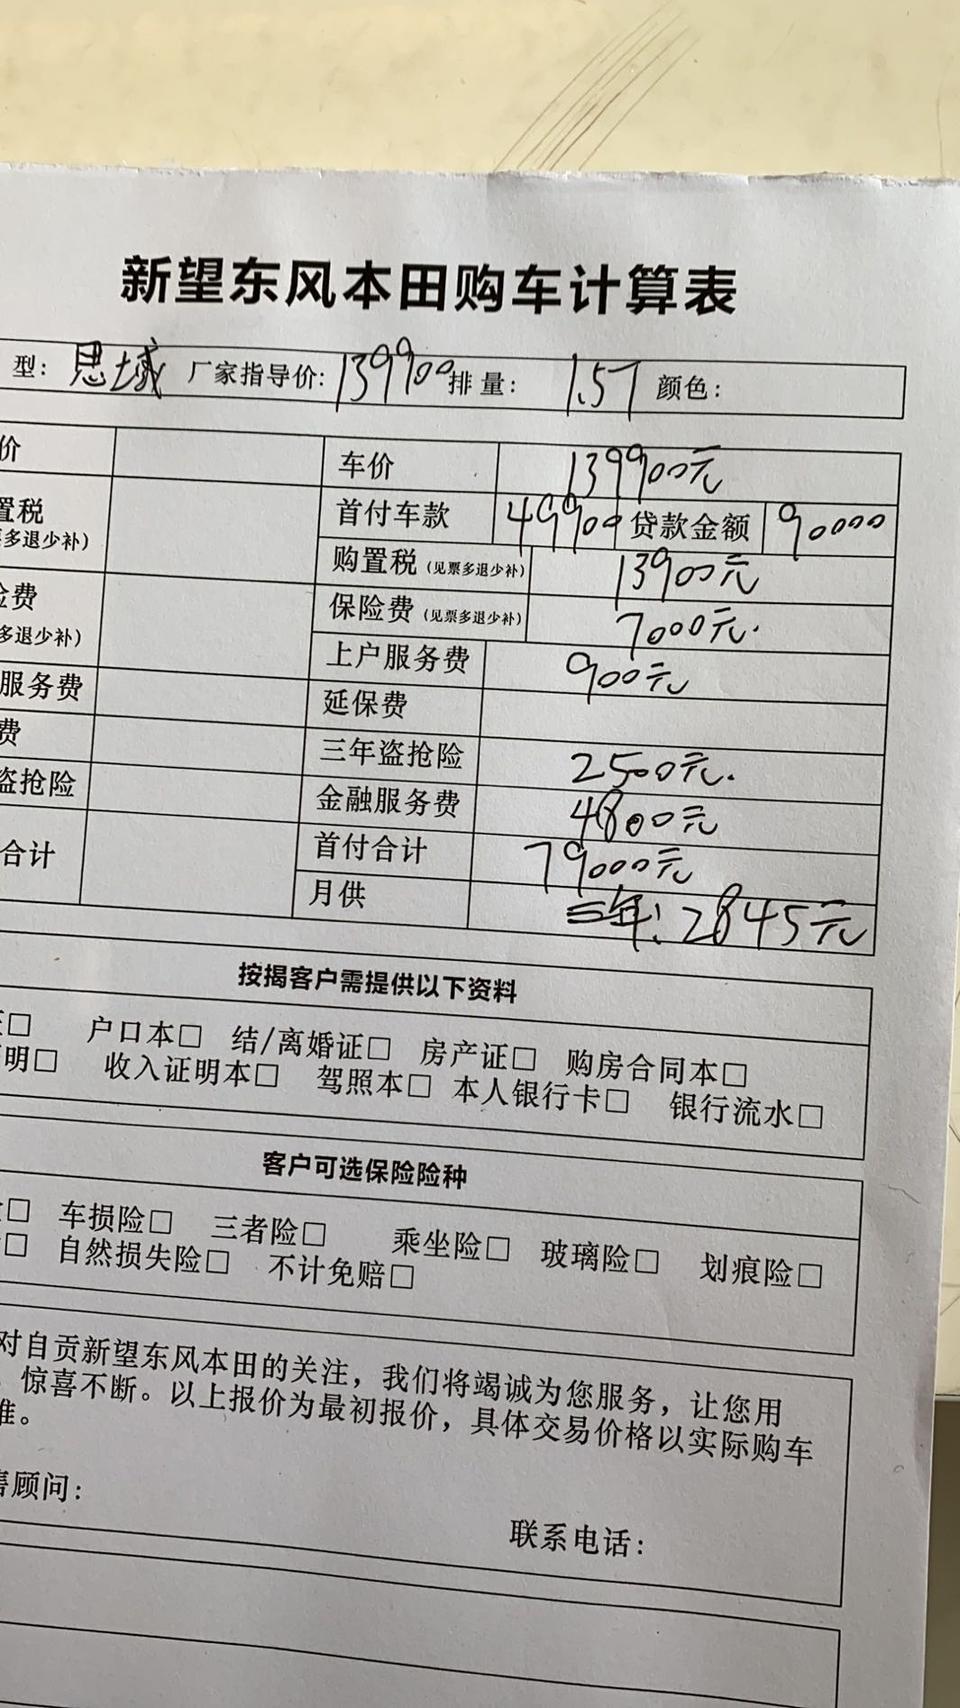 新望东风本田购车计算表
型：思域 厂家指导价：139900 排量：1.5T 颜色：
价 车价 139900元
置税 首付车款 49900 贷款金额 90000
票多退少补） 购置税（见票多退少补） 13900元
险费 保险费（见票多退少补） 7000元.
多退少补） 上户服务费 900元
服务费 延保费
费 三年盗抢险 2500元.
盗抢险 金融服务费 4800元
合计 首付合计 79000元
月供 三年：2845元
按揭客户需提供以下资料
证□ 户口本□ 结/离婚证□ 房产证□ 购房合同本□
明□ 收入证明本□ 驾照本□ 本人银行卡□ 银行流水□
客户可选保险险种
□ 车损险□ 三者险□ 乘坐险□ 玻璃险□ 划痕险□
□ 自然损失险□ 不计免赔□
对自贡新望东风本田的关注，我们将竭诚为您服务，让您用
，惊喜不断。以上报价为最初报价，具体交易价格以实际购车
准。
售顾问：
联系电话：